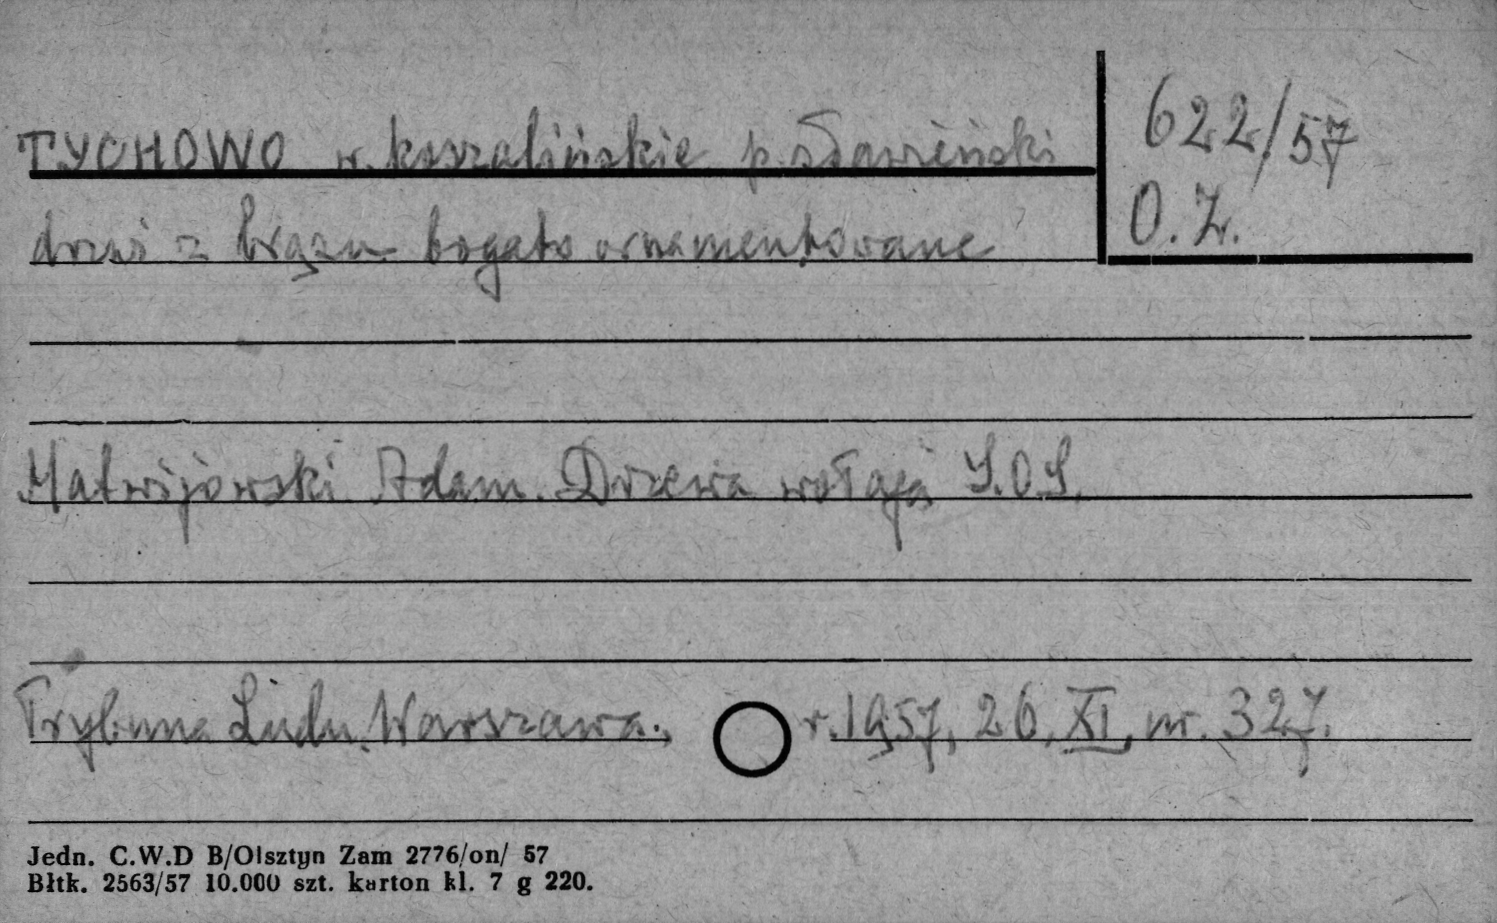 TYCHOWO w. koszalińskie p. sławieński
622/57
O. Z.
drzwi z brązu bogato ornamentowane
Matwijowski Adam. Drzewa wołają S.O.S.
Trybuna Ludu. Warszawa., r. 1957, 26, XI, nr. 327.
Jedn. C.W.D B/Olsztyn Zam 2776/on/ 57
Błtk. 2563/57 10.000 szt. karton kl. 7 g 220.